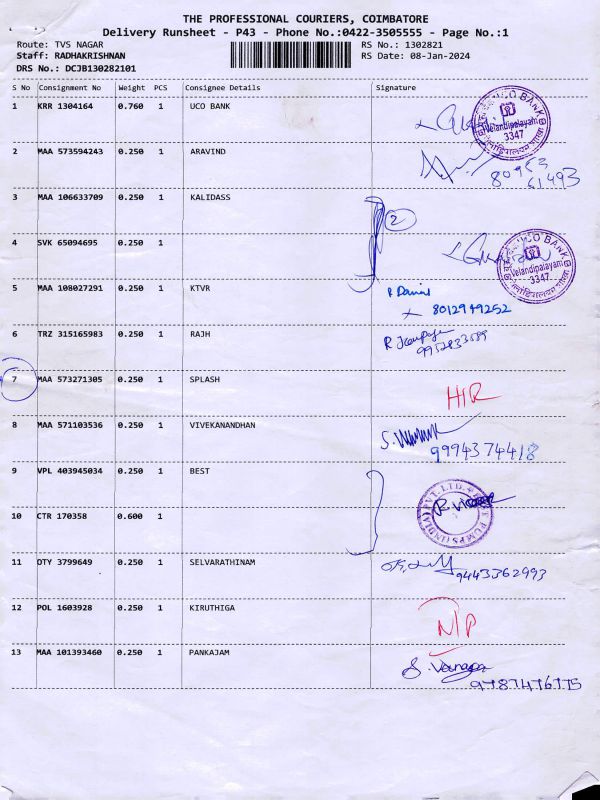 THE PROFESSIONAL COURIERS, COIMBATORE
Delivery Runsheet - P43 - Phone No.:0422-3505555 - Page No.:1
Route: TVS NAGAR RS No.: 1302821
Staff: RADHAKRISHNAN RS Date: 08-Jan-2024
DRS No.: DCJB130282101
S No Consignment No Weight PCS Consignee Details Signature
1 KRR 1304164 0.760 1 UCO BANK
UCO BANK Velandipalayam 3347
2 MAA 573594243 0.250 1 ARAVIND
80953
61493
3 MAA 106633709 0.250 1 KALIDASS
2
4 SVK 65094695 0.250 1
UCO BANK Velandipalayam 3347
5 MAA 108027291 0.250 1 KTVR
8012949252
6 TRZ 315165983 0.250 1 RAJH
7 MAA 573271305 0.250 1 SPLASH
H/R
8 MAA 571103536 0.250 1 VIVEKANANDHAN
9994374418
9 VPL 403945034 0.250 1 BEST
PUMPS (INDIA) PVT. LTD.
10 CTR 170358 0.600 1
11 DTY 3799649 0.250 1 SELVARATHINAM
9443362993
12 POL 1603928 0.250 1 KIRUTHIGA
N/P
13 MAA 101393460 0.250 1 PANKAJAM
9787476775